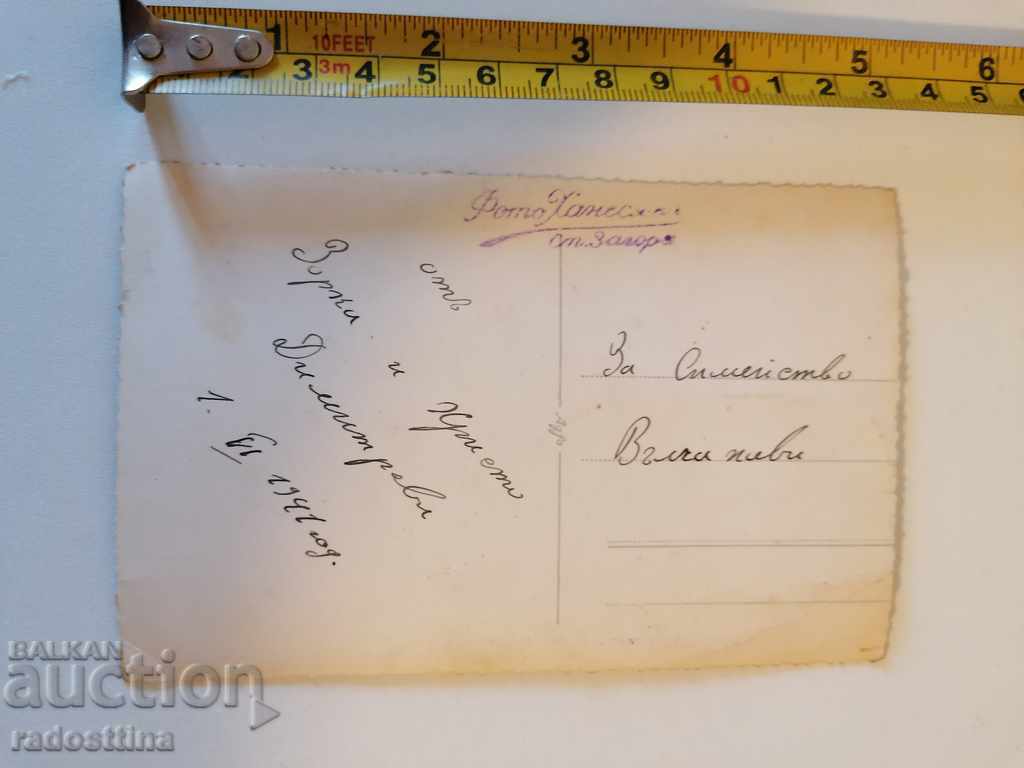 1 10FEET 2 3 4 5 6
2 3 3m 4 5 6 7 8 9 10 1 2 3 4 5 6
Фото
ст. Загора
отъ
Зорка и Христо
Димитрови
1. VI 1941 год.
За Симейство
Вълчанови
BALKAN
auction
radosttina